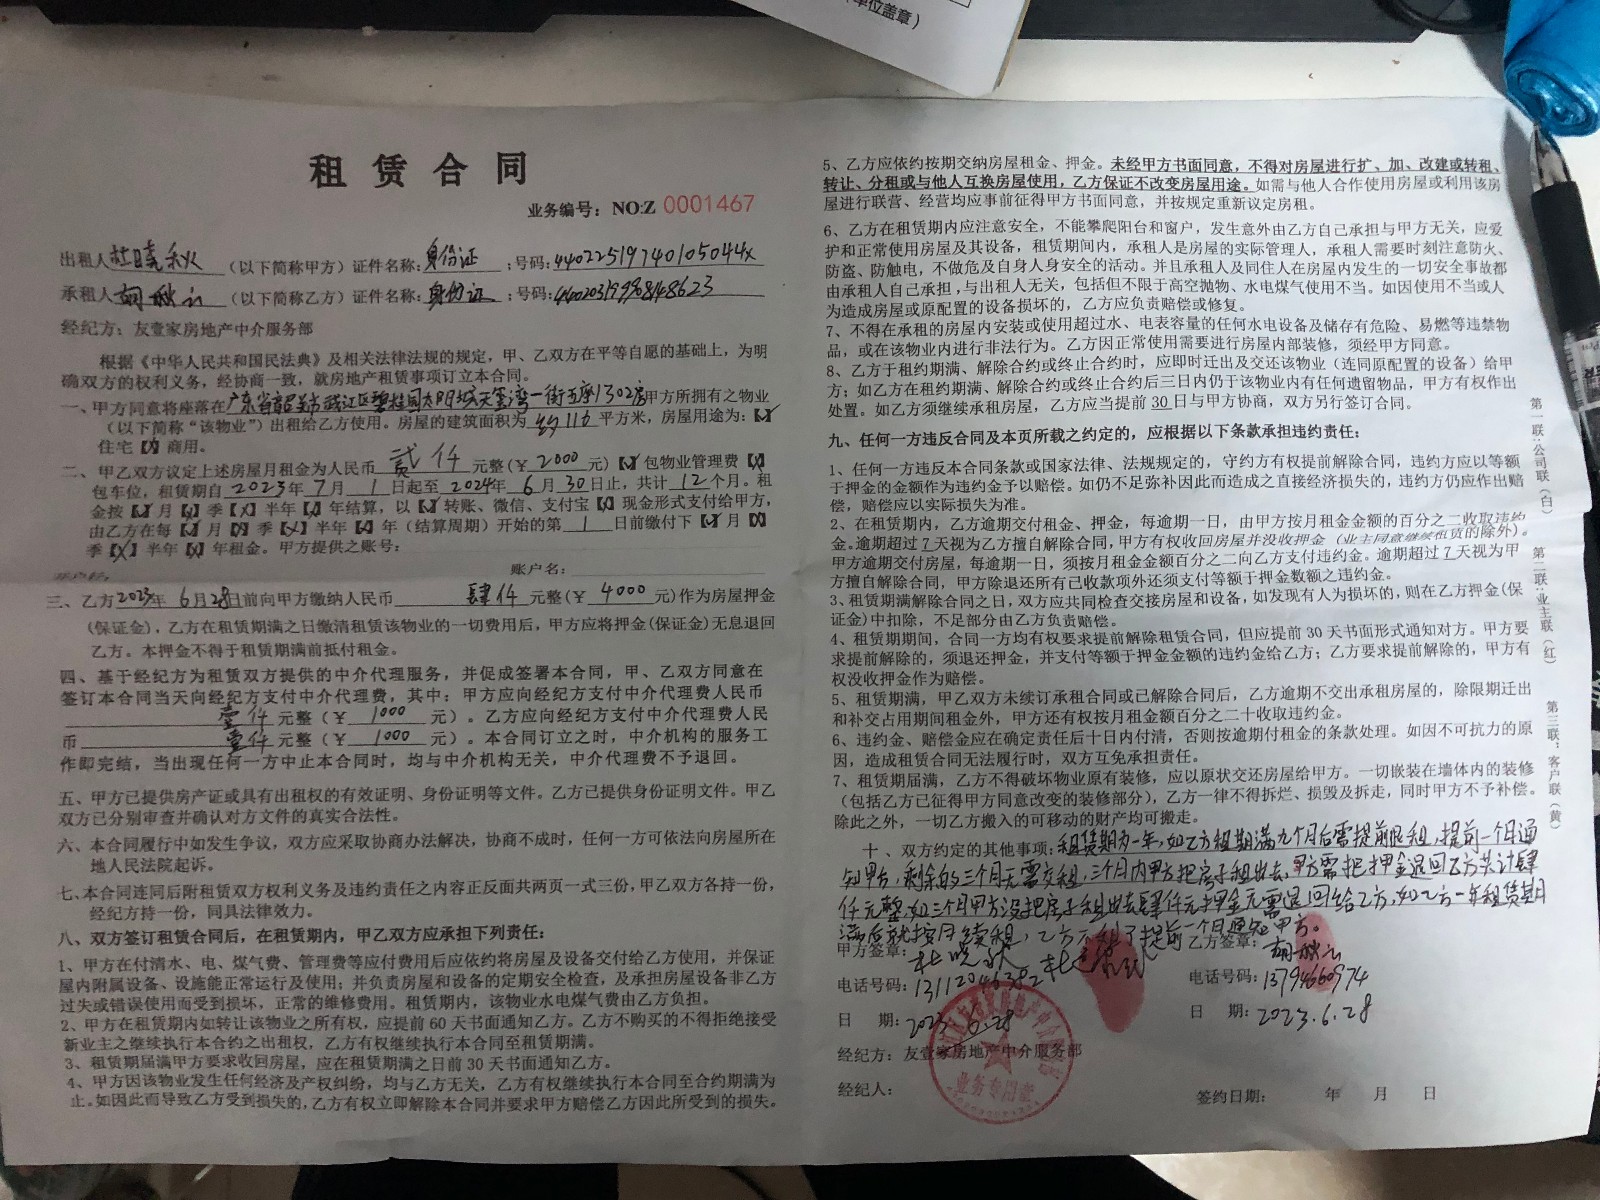 单位盖章）
租赁合同
业务编号：NO:Z 0001467
出租人杜晓秋（以下简称甲方）证件名称：身份证；号码：44022519740105044x
承租人胡秋云（以下简称乙方）证件名称：身份证；号码：
经纪方：友壹家房地产中介服务部
根据《中华人民共和国民法典》及相关法律法规的规定，甲、乙双方在平等自愿的基础上，为明
确双方的权利义务，经协商一致，就房地产租赁事项订立本合同。
一、甲方同意将座落在广东省韶关市武江区碧桂园太阳城天玺湾一街五座1302房甲方所拥有之物业
（以下简称“该物业”）出租给乙方使用。房屋的建筑面积为约116平方米，房屋用途为：【✓】
住宅【×】商用。
二、甲乙双方议定上述房屋月租金为人民币 贰仟 元整(￥2000元)【✓】包物业管理费【×】
包车位，租赁期自2023年7月1日起至2024年6月30日止，共计12个月。租
金按【✓】月【×】季【×】半年【×】年结算，以【✓】转账、微信、支付宝【×】现金形式支付给甲方，
由乙方在每【✓】月【×】季【×】半年【×】年（结算周期）开始的第1日前缴付下【✓】月【×】
季【×】半年【×】年租金。甲方提供之账号：
账户名：
三、乙方2023年6月28日前向甲方缴纳人民币 肆仟 元整(￥4000元)作为房屋押金
(保证金)，乙方在租赁期满之日缴清租赁该物业的一切费用后，甲方应将押金(保证金)无息退回
乙方。本押金不得于租赁期满前抵付租金。
四、基于经纪方为租赁双方提供的中介代理服务，并促成签署本合同，甲、乙双方同意在
签订本合同当天向经纪方支付中介代理费，其中：甲方应向经纪方支付中介代理费人民币
壹仟元整（￥1000元）。乙方应向经纪方支付中介代理费人民
币 壹仟元整（￥1000元）。本合同订立之时，中介机构的服务工
作即完结，当出现任何一方中止本合同时，均与中介机构无关，中介代理费不予退回。
五、甲方已提供房产证或具有出租权的有效证明、身份证明等文件。乙方已提供身份证明文件。甲乙
双方已分别审查并确认对方文件的真实合法性。
六、本合同履行中如发生争议，双方应采取协商办法解决，协商不成时，任何一方可依法向房屋所在
地人民法院起诉。
七、本合同连同后附租赁双方权利义务及违约责任之内容正反面共两页一式三份，甲乙双方各持一份，
经纪方持一份，同具法律效力。
八、双方签订租赁合同后，在租赁期内，甲乙双方应承担下列责任：
1、甲方在付清水、电、煤气费、管理费等应付费用后应依约将房屋及设备交付给乙方使用，并保证
屋内附属设备、设施能正常运行及使用；并负责房屋和设备的定期安全检查，及承担房屋设备非乙方
过失或错误使用而受到损坏，正常的维修费用。租赁期内，该物业水电煤气费由乙方负担。
2、甲方在租赁期内如转让该物业之所有权，应提前60天书面通知乙方。乙方不购买的不得拒绝接受
新业主之继续执行本合约之出租权，乙方有权继续执行本合同至租赁期满。
3、租赁期届满甲方要求收回房屋，应在租赁期满之日前30天书面通知乙方。
4、甲方因该物业发生任何经济及产权纠纷，均与乙方无关，乙方有权继续执行本合同至合约期满为
止。如因此而导致乙方受到损失的，乙方有权立即解除本合同并要求甲方赔偿乙方因此所受到的损失。
5、乙方应依约按期交纳房屋租金、押金。未经甲方书面同意，不得对房屋进行扩、加、改建或转租、
转让、分租或与他人互换房屋使用，乙方保证不改变房屋用途。如需与他人合作使用房屋或利用该房
屋进行联营、经营均应事前征得甲方书面同意，并按规定重新议定房租。
6、乙方在租赁期内应注意安全，不能攀爬阳台和窗户，发生意外由乙方自己承担与甲方无关，应爱
护和正常使用房屋及其设备，租赁期间内，承租人是房屋的实际管理人，承租人需要时刻注意防火、
防盗、防触电，不做危及自身人身安全的活动。并且承租人及同住人在房屋内发生的一切安全事故都
由承租人自己承担，与出租人无关，包括但不限于高空抛物、水电煤气使用不当。如因使用不当或人
为造成房屋或原配置的设备损坏的，乙方应负责赔偿或修复。
7、不得在承租的房屋内安装或使用超过水、电表容量的任何水电设备及储存有危险、易燃等违禁物
品，或在该物业内进行非法行为。乙方因正常使用需要进行房屋内部装修，须经甲方同意。
8、乙方于租约期满、解除合约或终止合约时，应即时迁出及交还该物业（连同原配置的设备）给甲
方；如乙方在租约期满、解除合约或终止合约后三日内仍于该物业内有任何遗留物品，甲方有权作出
处置。如乙方须继续承租房屋，乙方应当提前30日与甲方协商，双方另行签订合同。
九、任何一方违反合同及本页所载之约定的，应根据以下条款承担违约责任：
1、任何一方违反本合同条款或国家法律、法规规定的，守约方有权提前解除合同，违约方应以等额
于押金的金额作为违约金予以赔偿。如仍不足弥补因此而造成之直接经济损失的，违约方仍应作出赔
偿，赔偿应以实际损失为准。
2、在租赁期内，乙方逾期交付租金、押金，每逾期一日，由甲方按月租金金额的百分之二收取违约
金。逾期超过7天视为乙方擅自解除合同，甲方有权收回房屋并没收押金（业主同意继续租赁的除外）。
甲方逾期交付房屋，每逾期一日，须按月租金金额百分之二向乙方支付违约金。逾期超过7天视为甲
方擅自解除合同，甲方除退还所有已收款项外还须支付等额于押金数额之违约金。
3、租赁期满解除合同之日，双方应共同检查交接房屋和设备，如发现有人为损坏的，则在乙方押金(保
证金)中扣除，不足部分由乙方负责赔偿。
4、租赁期期间，合同一方均有权要求提前解除租赁合同，但应提前30天书面形式通知对方。甲方要
求提前解除的，须退还押金，并支付等额于押金金额的违约金给乙方；乙方要求提前解除的，甲方有
权没收押金作为赔偿。
5、租赁期满，甲乙双方未续订承租合同或已解除合同后，乙方逾期不交出承租房屋的，除限期迁出
和补交占用期间租金外，甲方还有权按月租金额百分之二十收取违约金。
6、违约金、赔偿金应在确定责任后十日内付清，否则按逾期付租金的条款处理。如因不可抗力的原
因，造成租赁合同无法履行时，双方互免承担责任。
7、租赁期届满，乙方不得破坏物业原有装修，应以原状交还房屋给甲方。一切嵌装在墙体内的装修
（包括乙方已征得甲方同意改变的装修部分），乙方一律不得拆烂、损毁及拆走，同时甲方不予补偿。
除此之外，一切乙方搬入的可移动的财产均可搬走。
十、双方约定的其他事项：租赁期为一年，如乙方租期满九个月后需提前退租，提前一个月通
知甲方，剩余的三个月无需交租，三个月内甲方把房子租出去，甲方需把押金退回乙方共计肆
仟元整，如三个月甲方没把房子租出去肆仟元押金无需退回给乙方，如乙方一年租赁期
满后就按月续租，乙方不租了提前一个月通知甲方。
甲方签章：杜晓秋
乙方签章：胡秋云
电话号码：13112046382
电话号码：13794660974
日 期：2023.6.28
日 期：2023.6.28
经纪方：友壹家房地产中介服务部
经纪人：
业务专用章
签约日期： 年 月 日
第一联：公司联（白）
第二联：业主联（红）
第三联：客户联（黄）